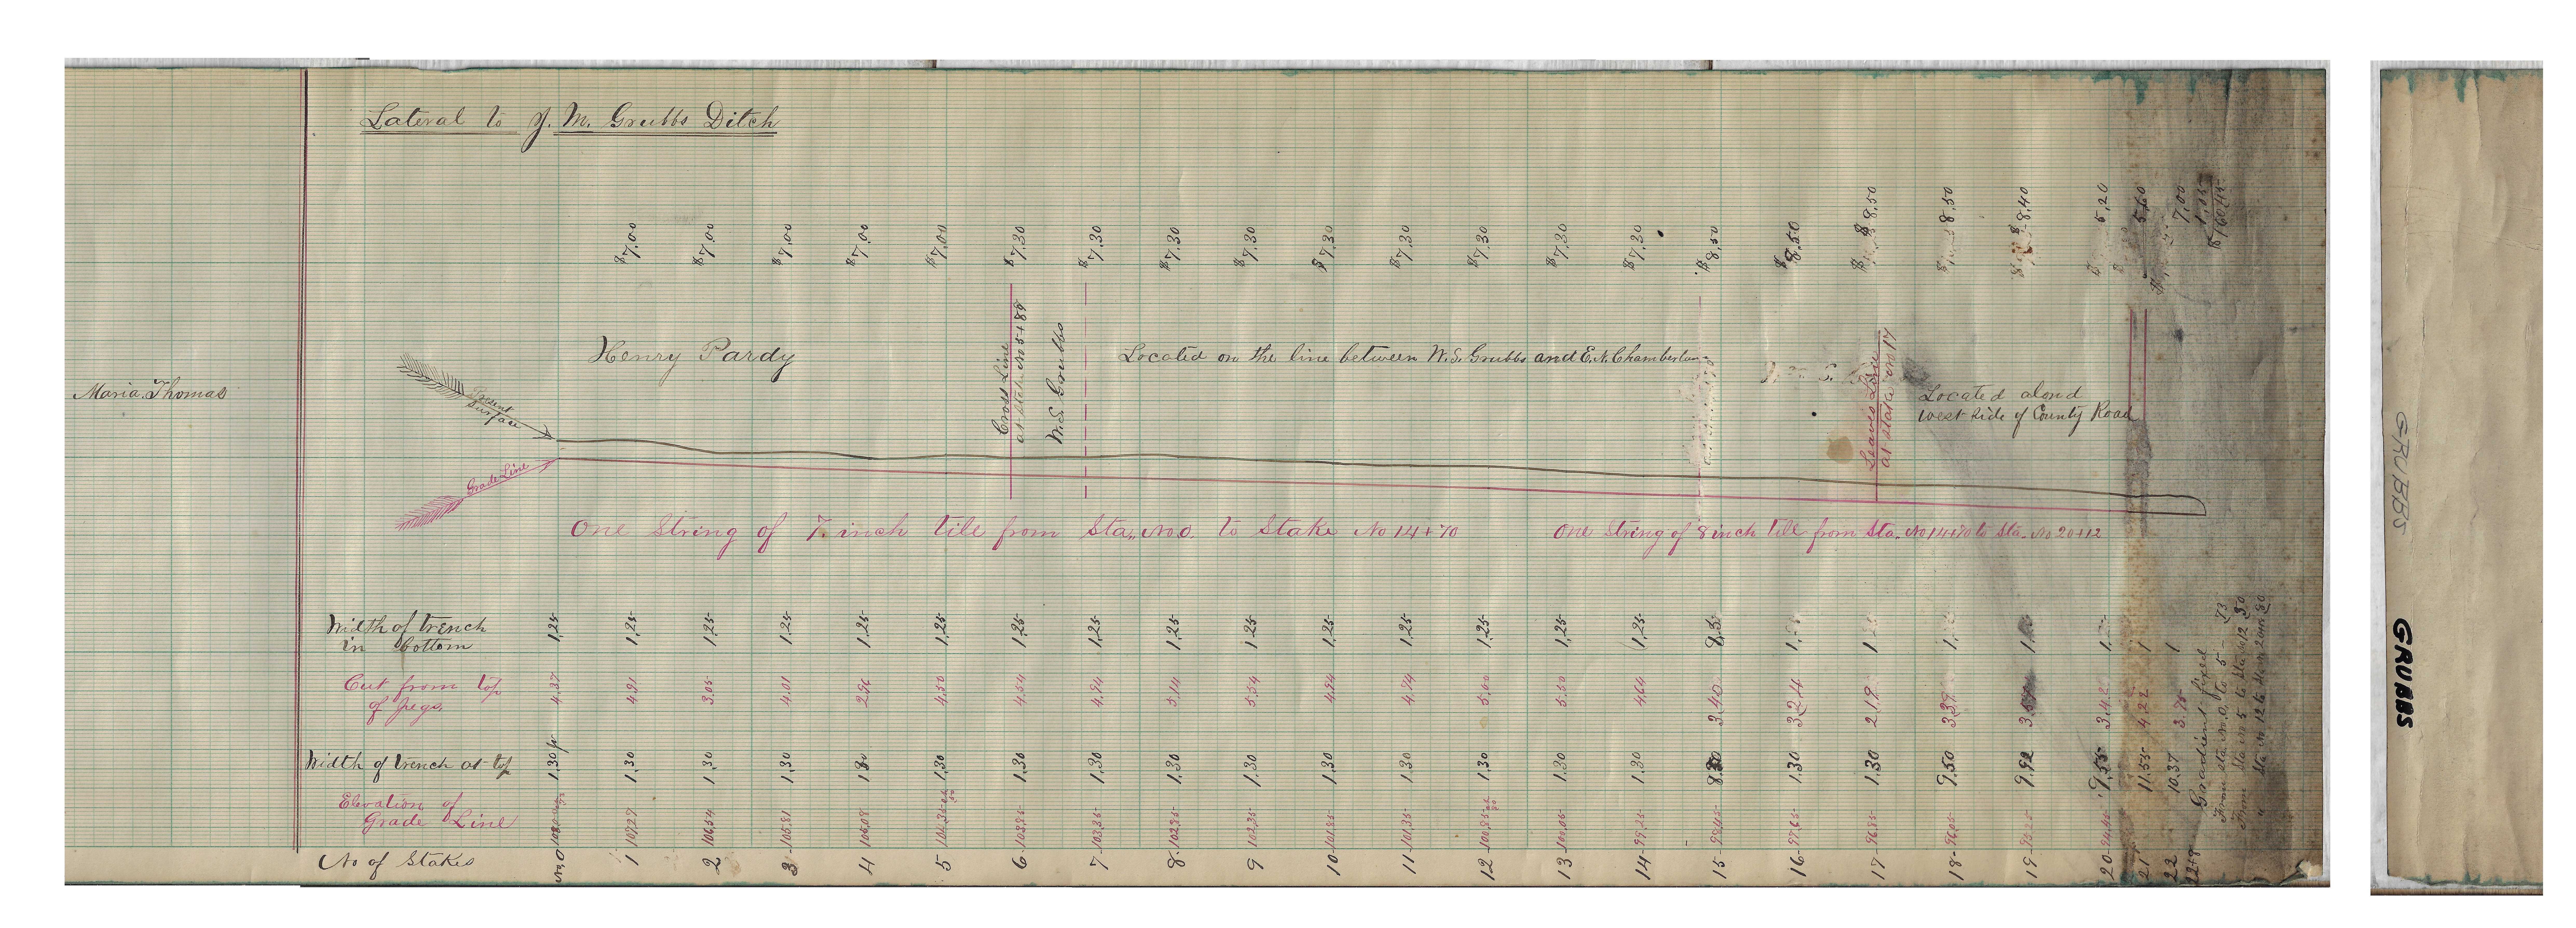 Lateral to J. M. Grubbs Ditch
$7.00 $7.00 $7.00 $7.00 $7.00 $7.30 $7.30 $7.30 $7.30 $7.30 $7.30 $7.30 $7.30 $7.30 $8.50 $8.50 $8.50 8.50 8.40 5.20 5.60 7.00
Maria. Thomas
Present
Surface
Grade Line
Henry Pardy
Cross Line
at stake No 5+89
W.S. Grubbs
Located on the line between W. S. Grubbs and E. N. Chamberlain
Leaves Line
at stake no 17
Located alond
west side of County Road
One String of 7 inch tile from Sta,, No.0. to Stake No 14+70
One String of 8 inch tile from Sta. No 14+70 to Sta. No 20+12
Width of trench
in bottom
1,25 1,25 1,25 1,25 1,25 1,25 1,25 1,25 1,25 1,25 1,25 1,25 1,25 1,25 1,25 1 1
Cut from top
of pegs.
4,37 4,91 3,05 4,01 2,96 4,50 4,54 4,94 5,14 5,54 4,94 4,74 5,00 5,50 4,64 3,40 3,24 2,19 3,39 3,42 4,22 3,75
Width of trench at top
1,30 fr 1,30 1,30 1,30 1,30 1,30 1,30 1,30 1,30 1,30 1,30 1,30 1,30 1,30 1,30 1,30 1,30 9,50 9,92 9,55 11,55 10,37
Elevation of
Grade Line
107,27 106,54 105,81 105,08 104,35 103,85 103,35 102,85 102,35 101,85 101,35 100,85 100,05 99,25 98,45 97,65 96,85 96,05 95,25 94,45
No of Stakes
No, 0 1 2 3 4 5 6 7 8 9 10 11 12 13 14 15 16 17 18 19 20 21 22
Gradient fixed
From sta No. 0, to 5 - ,73
From Sta No 5 to Sta No 12 ,50
GRUBBS
GRUBBS